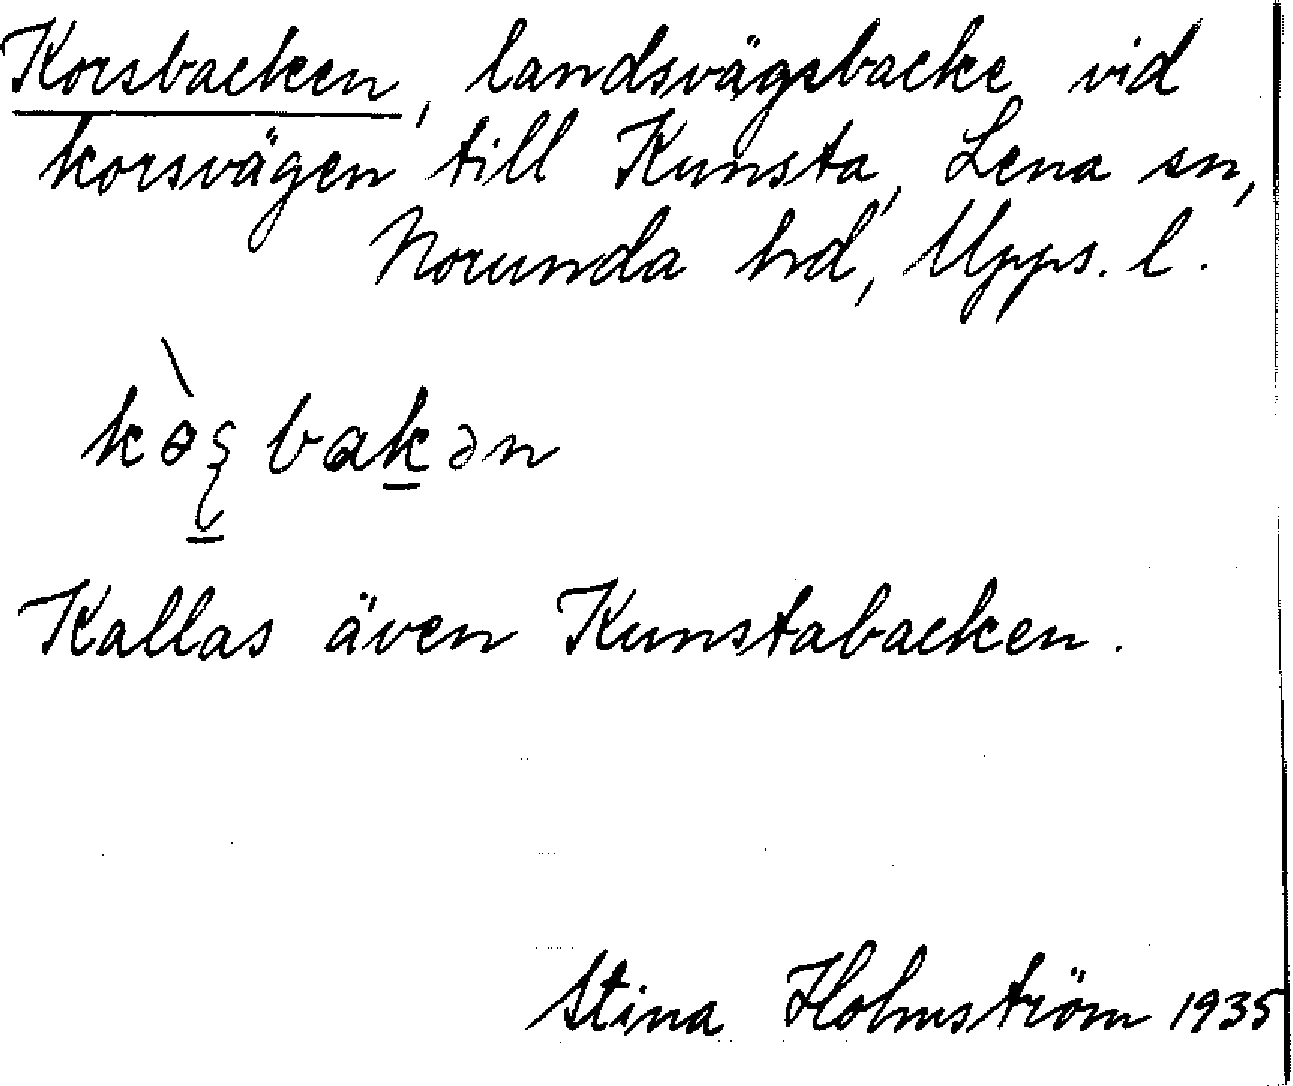 Korsbacken, landsvägsbacke vid
korsvägen till Kunsta, Lena sn,
Norunda hd, Upps. l.
kɵ̀ʂbak̲ən
Kallas även Kunstabacken.
Stina Holmström 1935